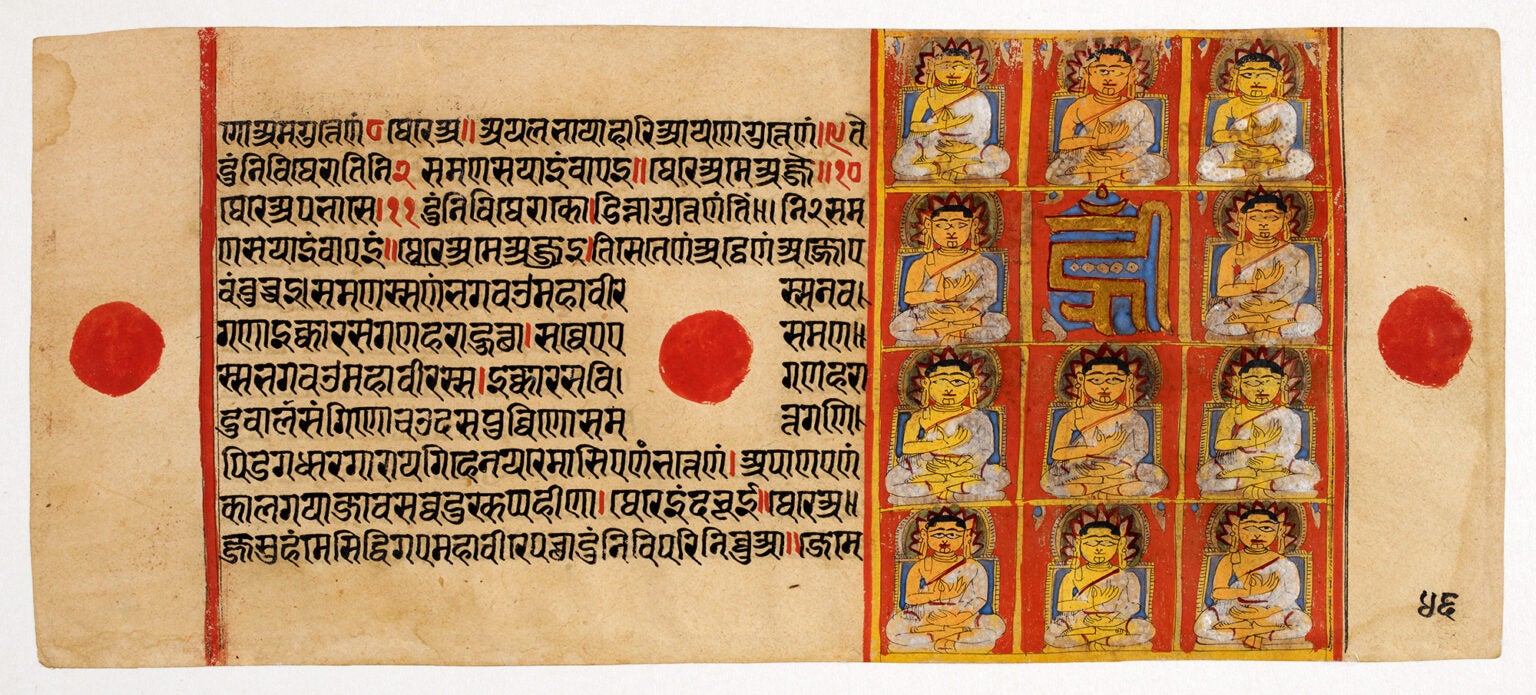 गोअमगुत्तेणं ८ थेरेअ॥ अयलभायाहारिआयणेगुत्तेणं॥९ ते
दुंनिविथेरातिनि २ समणसयाइंवाएइ॥ थेरेअमेअज्जे॥१०
थेरेअपभासे।११ दुंनिविथेराको।डिन्नागुत्तेणंतिं॥ नि२सम
णसयाइंवाएइं॥ थेरेअमेअज्जेइ।तिसेतेणंअट्ठेणंअज्जोए
वंवुच्चइ।समणस्सणंभगवओमहावीरे स्सनव।
गणाइक्कारसगणहराहुत्था।सव्वेएए समण॥
स्सभगवओमहावीरस्स।इक्कारसवि। गणहरा
दुवालसंगिणोचउदसपुव्विणोसम त्तगणि।
पिडगधारगारायगिहेनयरेमासिएणंभत्तेणं।अपाणएणं
कालगयाजावसव्वदुस्कप्पहीणा।थेरेइंदभूई॥थेरेअ॥
ज्जसुहंमेसिद्धिगएमहावीरेपच्छादुंनिविपरिनिव्वुआ॥जेमे
५६